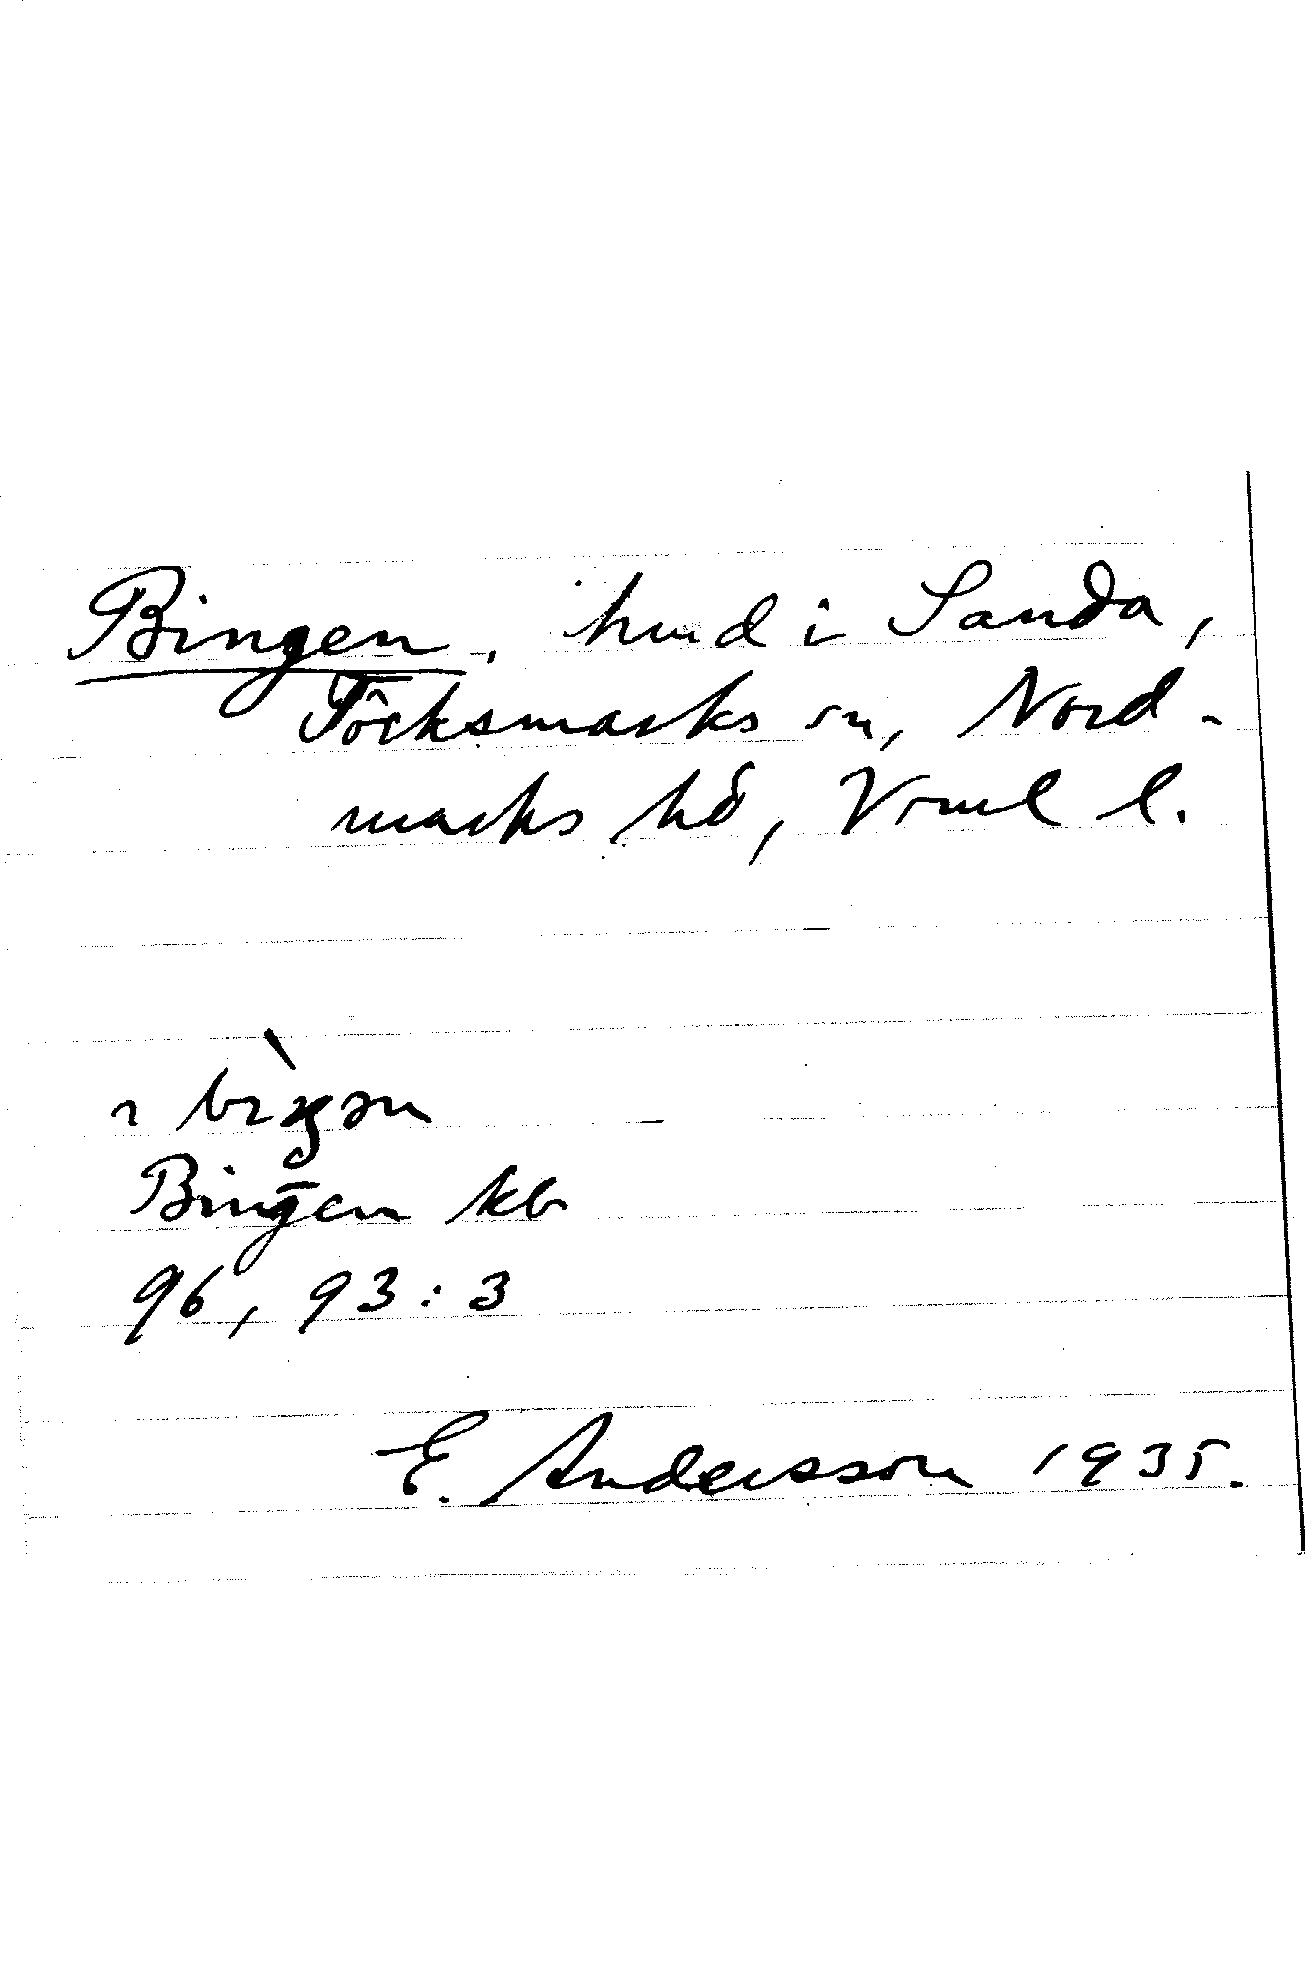 Bingen, hmd i Sanda,
Töcksmarks sn, Nord-
marks hd, Vrml l.
ı bı̀ŋən
Bingen kb
96, 93:3
E. Andersson 1935.